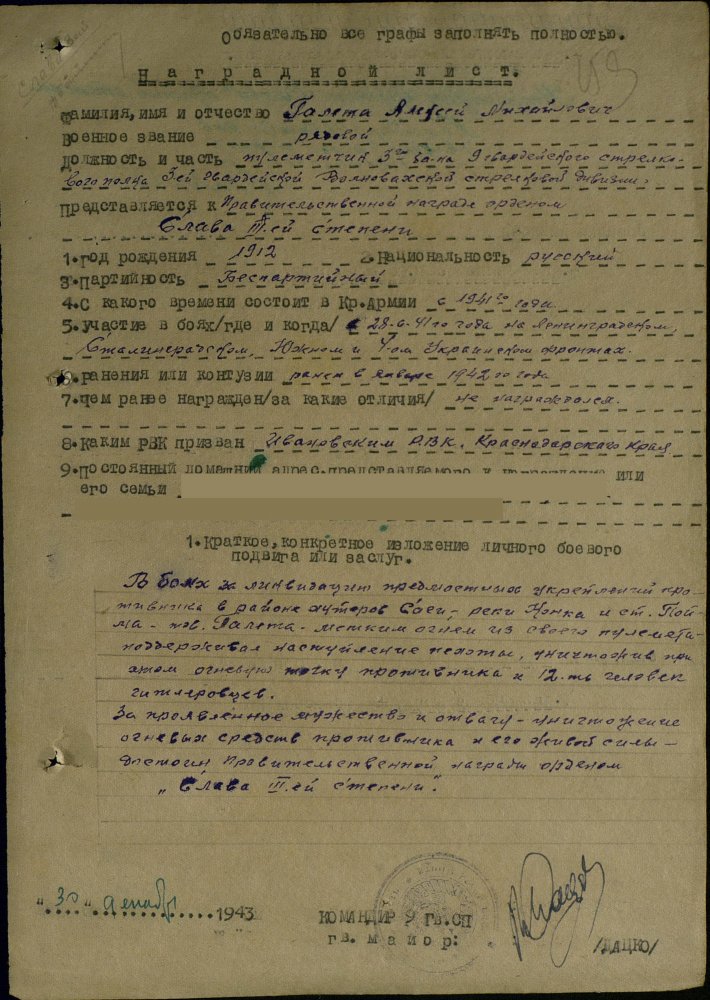 Обязательно все графы заполнять полностью.
Наградной лист.
Фамилия, имя и отчество Галета Алексей Михайлович
Военное звание рядовой
Должность и часть пулеметчик 3го ба-на 9 гвардейского стрелко-
вого полка 3ей Гвардейской Волновахской стрелковой дивизии.
Представляется к Правительственной награде орденом
Слава III-ей степени
1. год рождения 1912 2. Национальность русский
3. Партийность Беспартийный
4. С какого времени состоит в Кр. Армии с 1941го года
5. участие в боях /где и когда/ с 28-6-41го года на Ленинградском,
Сталинградском, Южном и 4ом Украинском фронтах.
6. ранения или контузии ранен в январе 1942го года
7. чем ранее награжден /за какие отличия/ не награждался.
8. Каким РВК призван Ивановским РВК, Краснодарского Края
9. Постоянный домашний адрес, представляемого к награждению или
его семьи
1. Краткое, конкретное изложение личного боевого
подвига или заслуг.
В боях за ликвидацию предмостных укреплений про-
тивника в районе хуторов реки Конка и ст. Пой-
ма - тов. Галета - метким огнем из своего пулемета
поддерживал наступление пехоты, уничтожив при
этом огневую точку противника и 12-ть человек
гитлеровцев.
За проявленное мужество и отвагу - уничтожение
огневых средств противника и его живой силы -
достоин Правительственной награды орденом
"Слава III-ей степени".
"30" декабря 1943
КОМАНДИР 9 ГВ.СП
гв. майор:
/ДАЦКО/